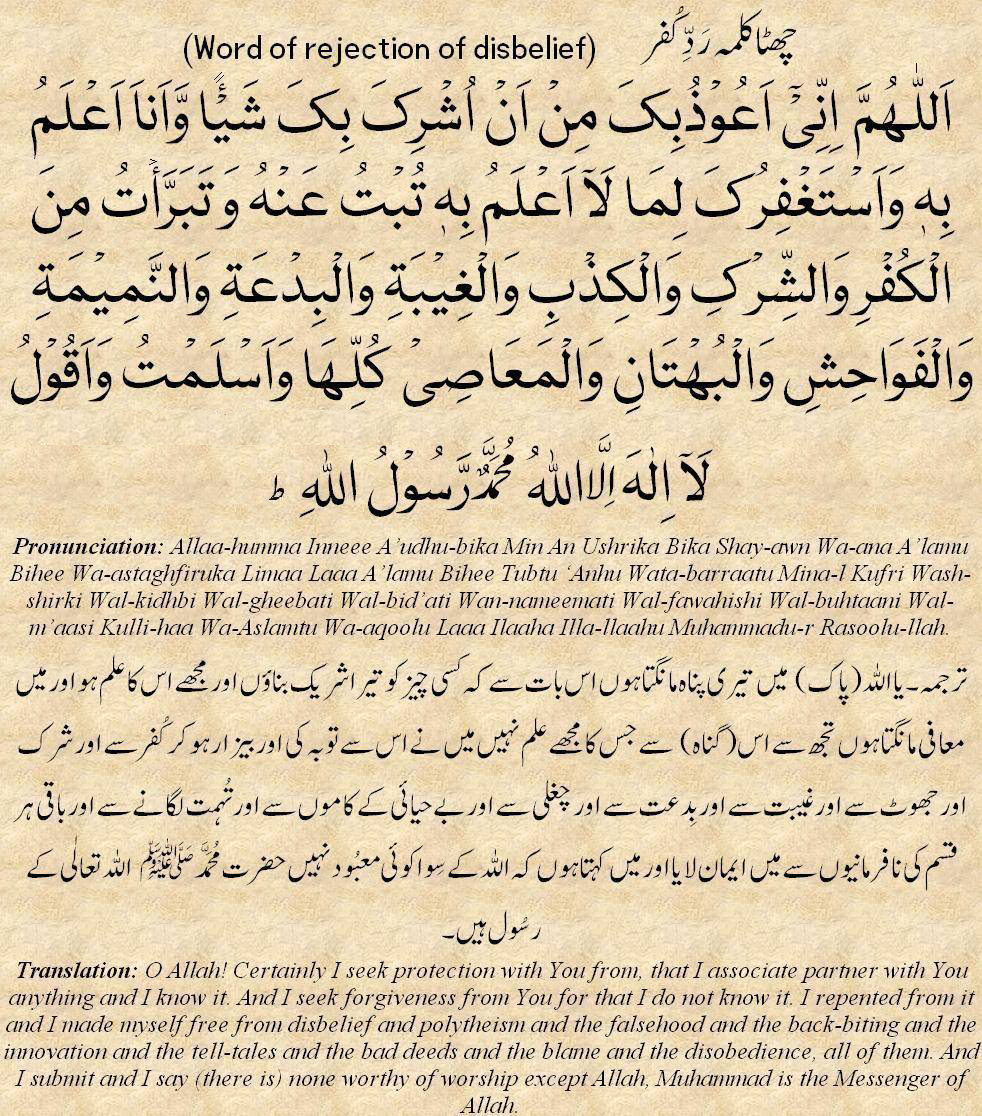 (Word of rejection of disbelief) چھٹا کلمہ رَدِّ کُفر
اَللّٰهُمَّ اِنِّیْۤ اَعُوْذُبِکَ مِنْ اَنْ اُشْرِکَ بِکَ شَیْئًا وَّاَنَا اَعْلَمُ
بِهٖ وَاَسْتَغْفِرُکَ لِمَا لَاۤ اَعْلَمُ بِهٖ تُبْتُ عَنْهُ وَ تَبَرَّأْتُ مِنَ
الْکُفْرِ وَالشِّرْکِ وَالْکِذْبِ وَالْغِیْبَةِ وَالْبِدْعَةِ وَالنَّمِیْمَةِ
وَالْفَوَاحِشِ وَالْبُهْتَانِ وَالْمَعَاصِیْ کُلِّهَا وَاَسْلَمْتُ وَاَقُوْلُ
لَاۤ اِلٰهَ اِلَّا اللهُ مُحَمَّدٌ رَّسُوْلُ اللهِ ط
Pronunciation: Allaa-humma Inneee A’udhu-bika Min An Ushrika Bika Shay-awn Wa-ana A’lamu
Bihee Wa-astaghfiruka Limaa Laaa A’lamu Bihee Tubtu ‘Anhu Wata-barraatu Mina-l Kufri Wash-
shirki Wal-kidhbi Wal-gheebati Wal-bid’ati Wan-nameemati Wal-fawahishi Wal-buhtaani Wal-
m’aasi Kulli-haa Wa-Aslamtu Wa-aqoolu Laaa Ilaaha Illa-llaahu Muhammadu-r Rasoolu-llah.
ترجمہ۔ یا اللہ (پاک) میں تیری پناہ مانگتا ہوں اس بات سے کہ کسی چیز کو تیرا شریک بناؤں اور مجھے اس کا علم ہو اور میں
معافی مانگتا ہوں تجھ سے اس (گناہ) سے جس کا مجھے علم نہیں میں نے اس سے توبہ کی اور بیزار ہو کر کُفر سے اور شرک
اور جھوٹ سے اور غیبت سے اور بِدعت سے اور چغلی سے اور بے حیائی کے کاموں سے اور تُہمت لگانے سے اور باقی ہر
قسم کی نافرمانیوں سے میں ایمان لایا اور میں کہتا ہوں کہ اللہ کے سِوا کوئی معبُود نہیں حضرت مُحَمَّد ﷺ اللہ تعالٰی کے
رسُول ہیں۔
Translation: O Allah! Certainly I seek protection with You from, that I associate partner with You
anything and I know it. And I seek forgiveness from You for that I do not know it. I repented from it
and I made myself free from disbelief and polytheism and the falsehood and the back-biting and the
innovation and the tell-tales and the bad deeds and the blame and the disobedience, all of them. And
I submit and I say (there is) none worthy of worship except Allah, Muhammad is the Messenger of
Allah.